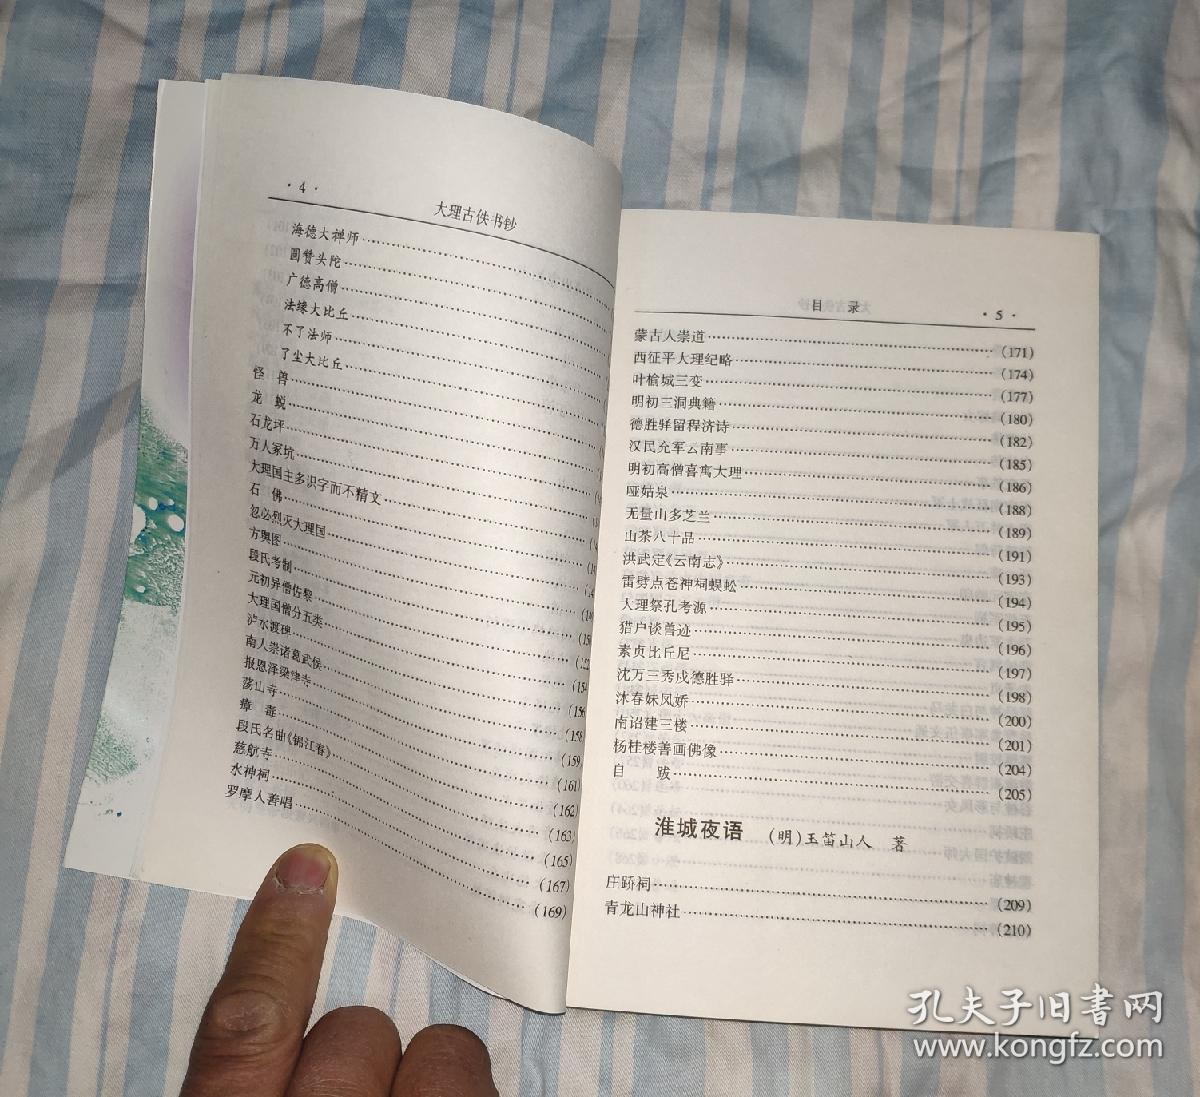 · 4 ·
大理古佚书钞
海德大禅师
圆赞头陀
广德高僧
法缘大比丘
不了法师
了尘大比丘
怪 兽
龙 蜕
石龙坪
万人冢坑
大理国主多识字而不精文
石 佛
忽必烈灭大理国
方舆图
段氏考制
元初异僧佐黎
大理国僧分五类
泸水渡碑
南人崇诸葛武侯
报恩泽梁肆寺
荡山寺 (156)
瘴 毒 (158)
段氏名曲《锦江春》
慈航寺
水神祠
罗摩人善唱
(159)
(161)
(162)
(163)
(165)
(167)
(169)
目 录
· 5 ·
蒙古人崇道 (171)
西征平大理纪略 (174)
叶榆城三变 (177)
明初三洞典籍 (180)
德胜驿留程济诗 (182)
汉民充军云南事 (185)
明初高僧喜寓大理 (186)
哑姑泉 (188)
无量山多芝兰 (189)
山茶八十品 (191)
洪武定《云南志》 (193)
雷劈点苍神祠蜈蚣 (194)
大理祭孔考源 (195)
猎户谈兽迹 (196)
素贞比丘尼 (197)
沈万三秀戍德胜驿 (198)
沐春妹凤娇 (200)
南诏建三楼 (201)
杨桂楼善画佛像 (204)
自 跋 (205)
淮城夜语 (明)玉笛山人 著
庄蹻祠 (209)
青龙山神社 (210)
孔夫子旧书网
www.kongfz.com